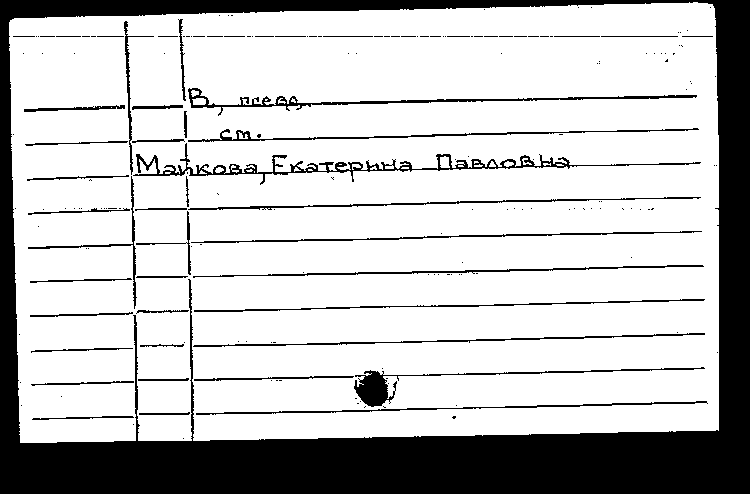 В, псевд.
ст.
Майкова, Екатерина Павловна